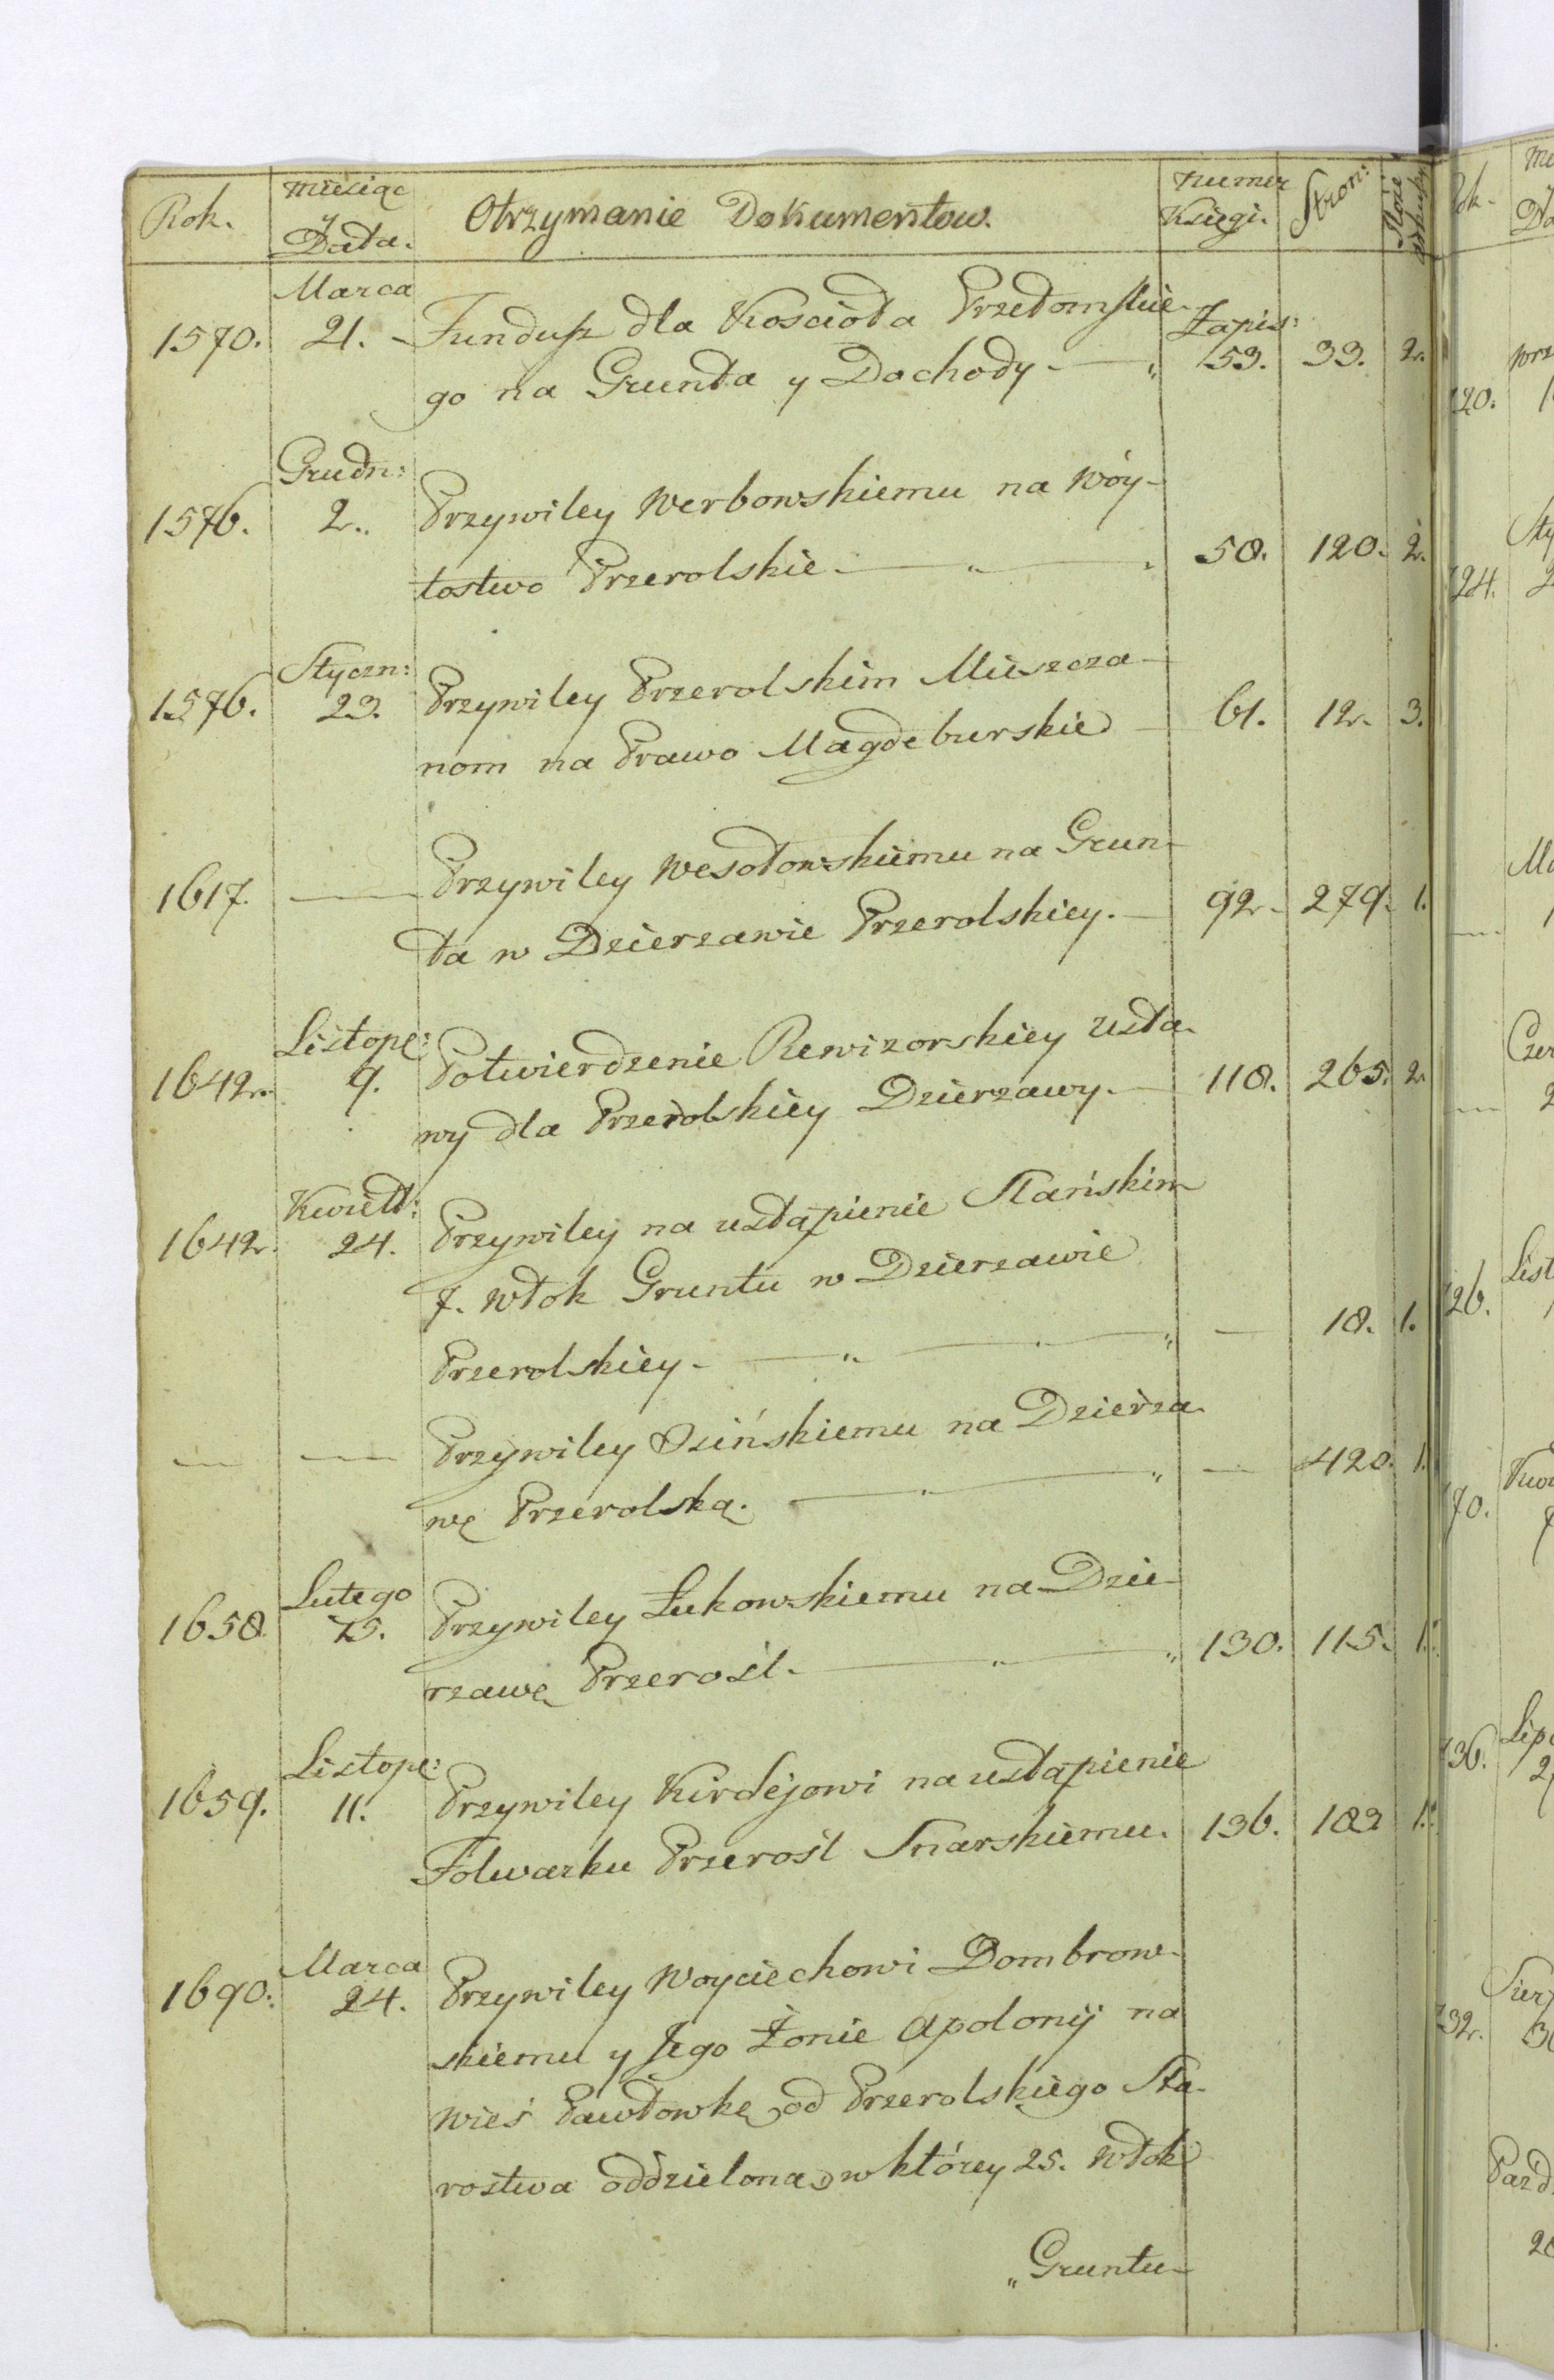 Rok. Miesiąc y Data. Otrzymanie Dokumentow. Numer Księgi. Stron:
Marca
1570. 21. Fundusz dla Koscioła Przełomskie- Zapis:
go na Grunta y Dochody 53. 33. 2.
Grudn:
1576. 2. Przywiley Werbowskiemu na Wóy-
tostwo Przerolskie 58. 120. 2.
Styczn:
1576. 23. Przywiley Przerolskim Mieszcza-
nom na Prawo Magdeburskie 61. 12. 3.
1617. — Przywiley Wesołowskiemu na Grun-
ta w Dzierzawie Przerolskiey. 92. 279. 1.
Listopa:
1642. 9. Potwierdzenie Rewizorskiey Usta-
wy dla Przerolskiey Dzierzawy. 118. 265. 2.
Kwiet:
1642. 24. Przywiley na ustąpienie Stańskim
7. Włok Gruntu w Dzierzawie
Przerolskiey — 18. 1.
— — Przywiley Osińskiemu na Dzierza-
wę Przerolską. — 420. 1.
Lutego
1658. 15. Przywiley Łukowskiemu na Dzie-
rzawę Przerośl. 130. 115. 1.
Listopa:
1659. 11. Przywiley Kirdejowi na ustąpienie
Folwarku Przerośl Snarskiemu. 136. 183 1.
Marca
1690. 24. Przywiley Woyciechowi Dombrow-
skiemu y Jego Żonie Apolonij na
Wieś Pawłowkę od Przerolskiego Sta-
rostwa oddzieloną w którey 25. Włok
Gruntu